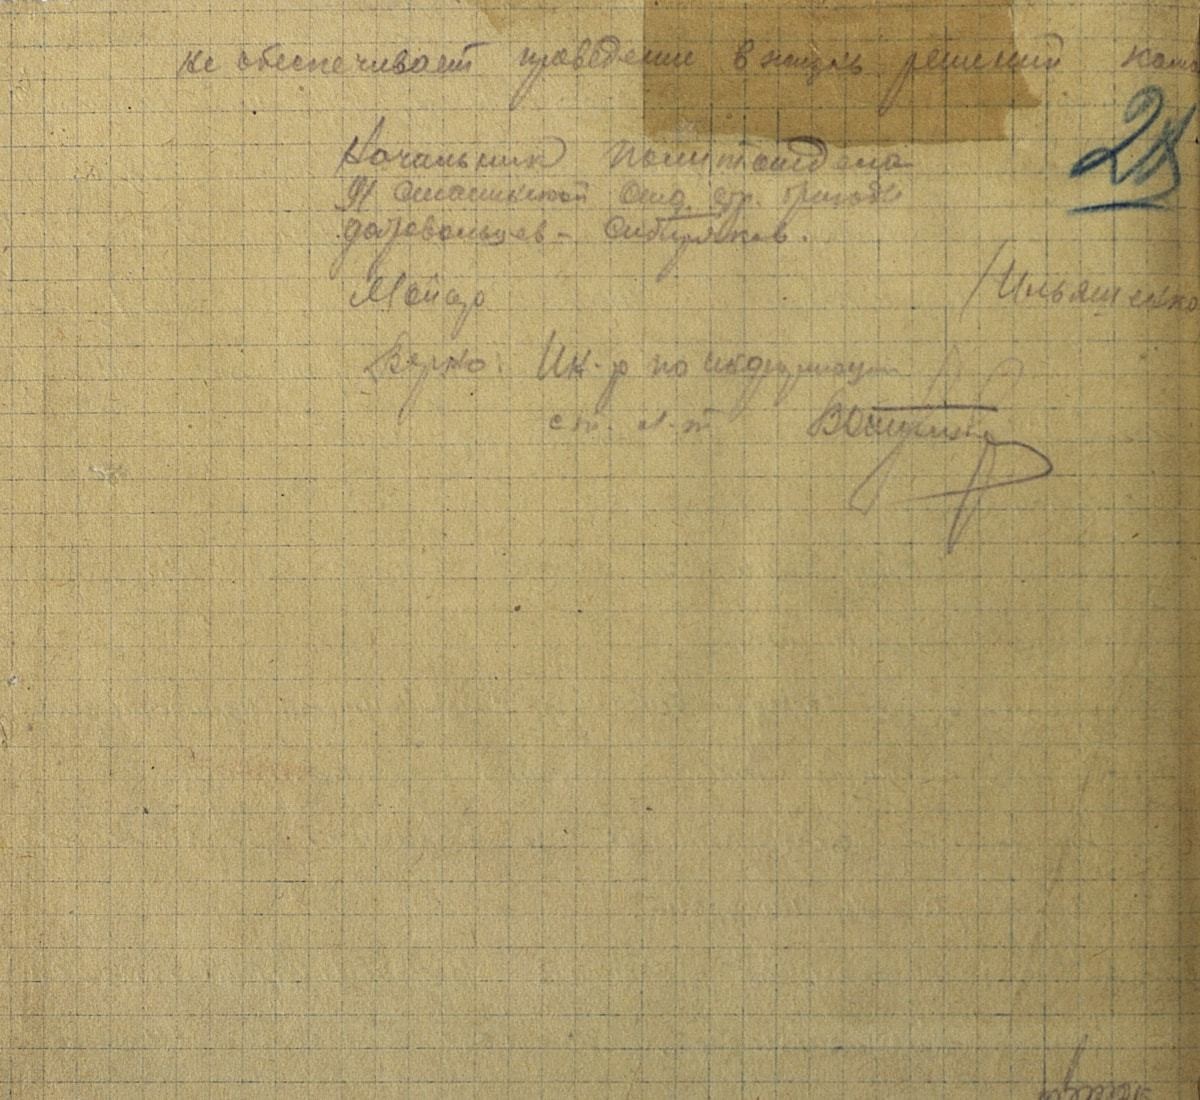 не обеспечивает проведение в жизнь решений
28
Начальник Политотдела
91 отд. стр. бригады
добровольцев - сибиряков.
Майор /Ильяшенко
Верно: Ин-р по информации
ст. л-т